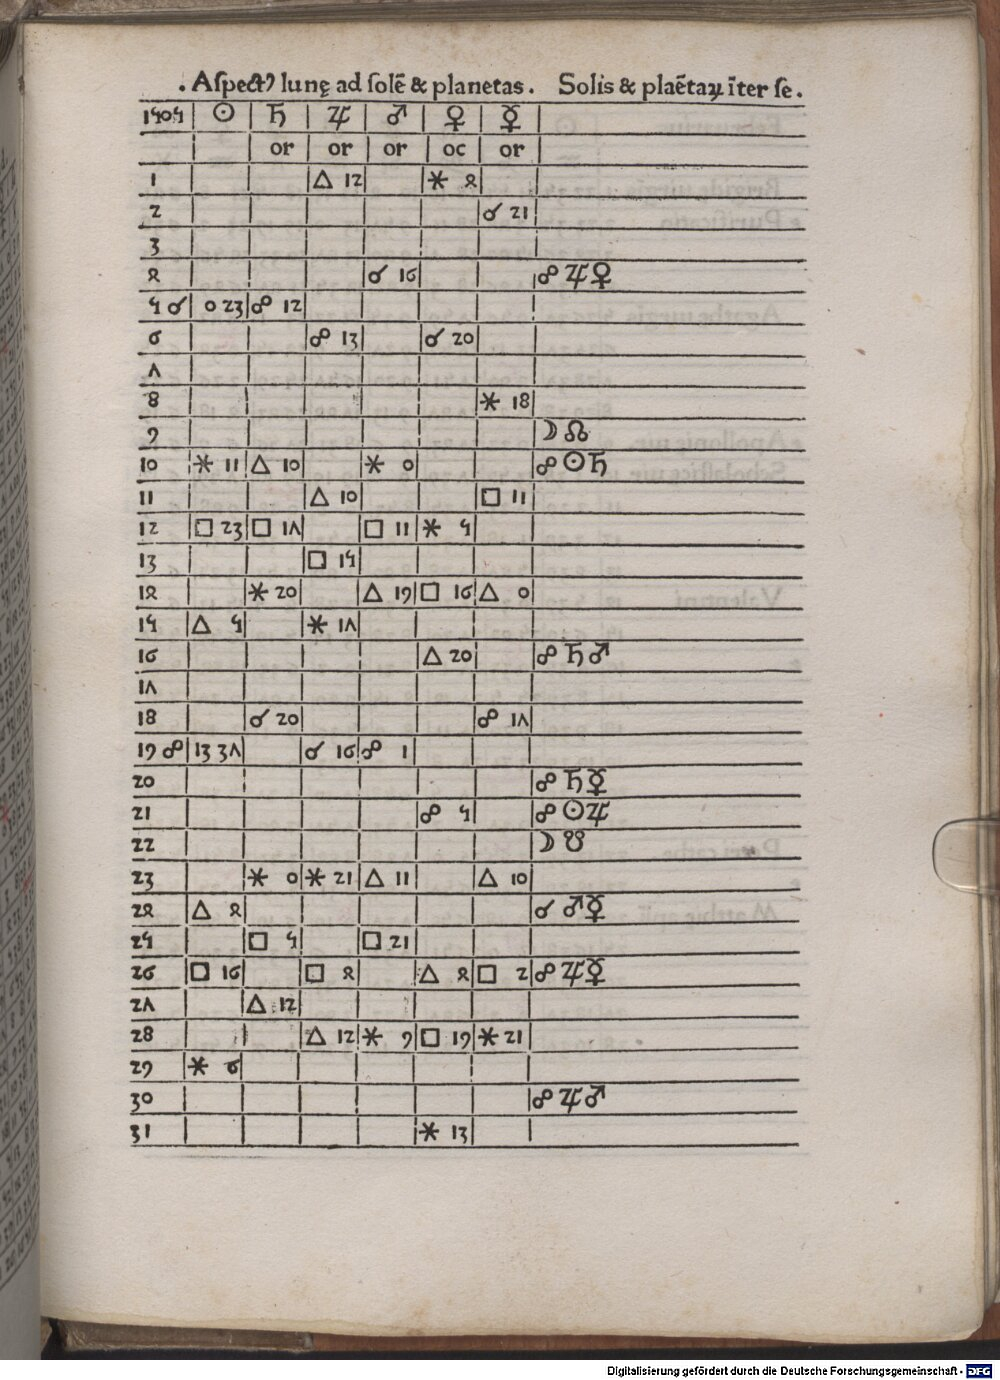 . Aſpectꝰ lunę ad ſolē & planetas . Solis & plaētaꝝ īter ſe .
1505 ☉ ♄ ♃ ♂ ♀ ☿
or or or oc or
1 △ 12 ⚹ 4
2 ☌ 21
3
4 ☌ 16 ☍ ♃ ♀
5 ☌ 0 23 ☍ 12
6 ☍ 13 ☌ 20
7
8 ⚹ 18
9 ☽ ☊
10 ⚹ 11 △ 10 ⚹ 0 ☍ ☉ ♄
11 △ 10 □ 11
12 □ 23 □ 17 □ 11 ⚹ 5
13 □ 15
14 ⚹ 20 △ 19 □ 16 △ 0
15 △ 5 ⚹ 17
16 △ 20 ☍ ♄ ♂
17
18 ☌ 20 ☍ 17
19 ☍ 13 37 ☌ 16 ☍ 1
20 ☍ ♄ ☿
21 ☍ 5 ☍ ☉ ♃
22 ☽ ☋
23 ⚹ 0 ⚹ 21 △ 11 △ 10
24 △ 4 ☌ ♂ ☿
25 □ 5 □ 21
26 □ 16 □ 4 △ 4 □ 2 ☍ ♃ ☿
27 △ 12
28 △ 12 ⚹ 9 □ 19 ⚹ 21
29 ⚹ 6
30 ☍ ♃ ♂
31 ⚹ 13
Digitalisierung gefördert durch die Deutsche Forschungsgemeinschaft - DFG